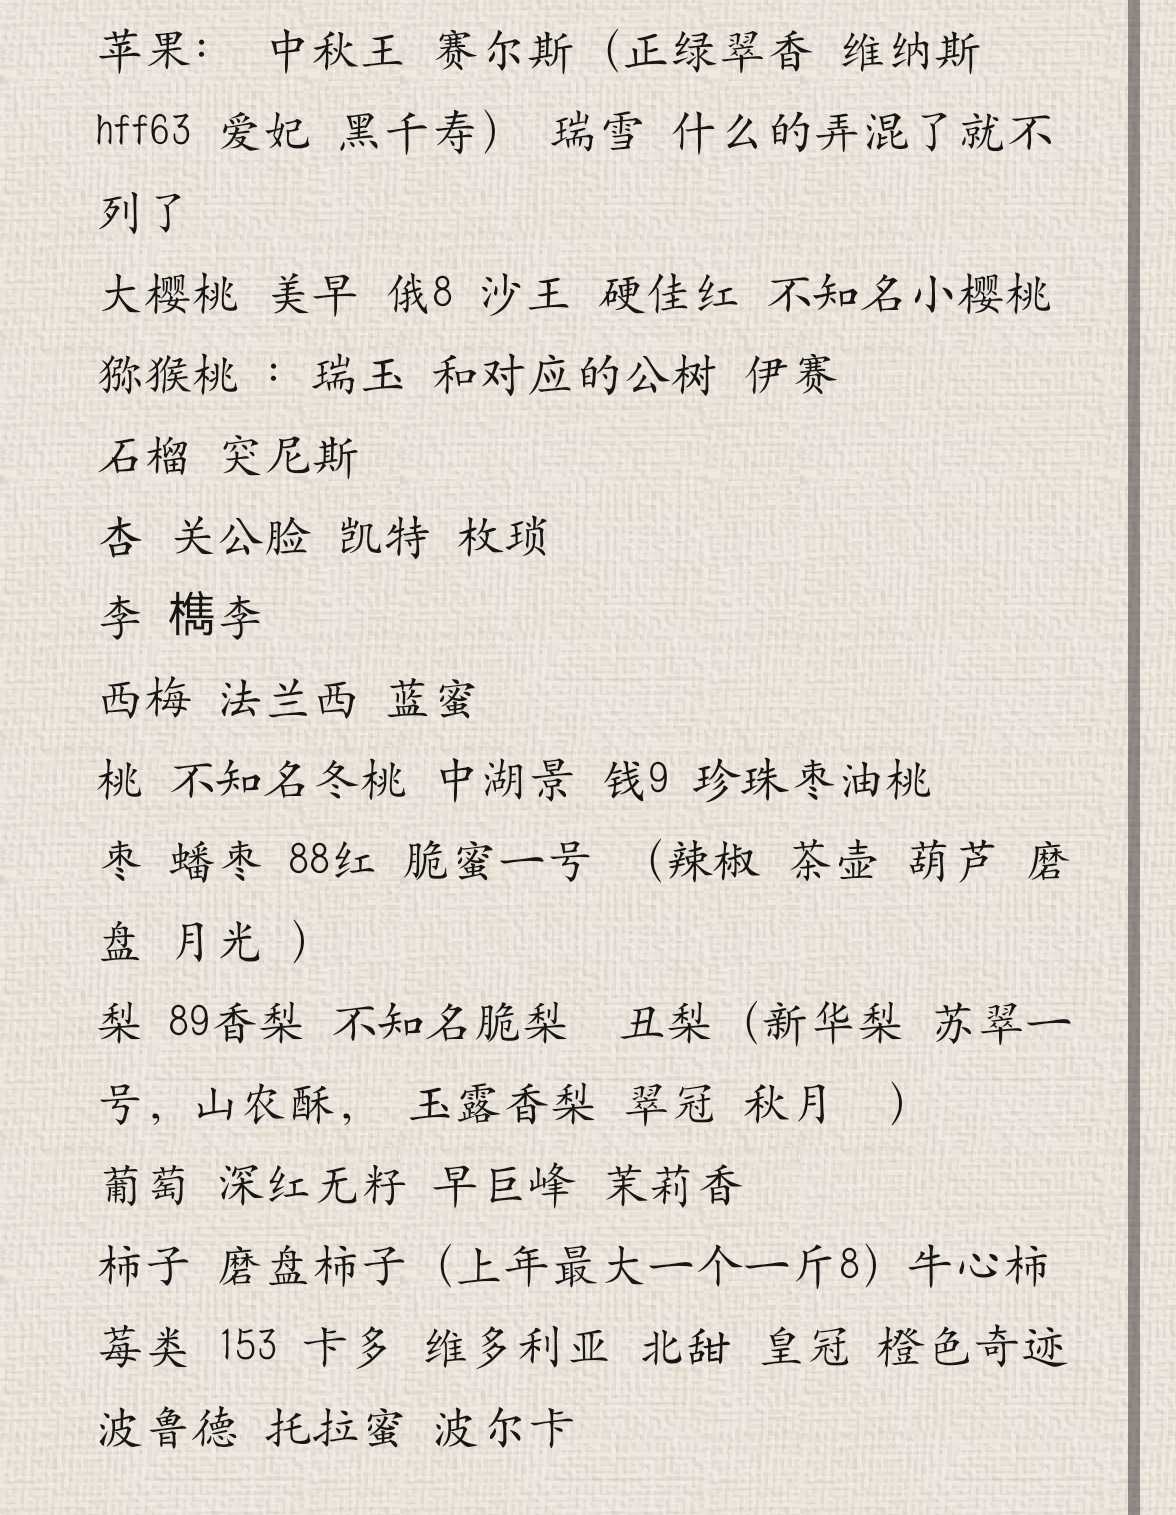 苹果： 中秋王 赛尔斯（正绿翠香 维纳斯
hff63 爱妃 黑千寿） 瑞雪 什么的弄混了就不
列了
大樱桃 美早 俄8 沙王 硬佳红 不知名小樱桃
猕猴桃 ：瑞玉 和对应的公树 伊赛
石榴 突尼斯
杏 关公脸 凯特 枚琐
李 檇李
西梅 法兰西 蓝蜜
桃 不知名冬桃 中湖景 钱9 珍珠枣油桃
枣 蟠枣 88红 脆蜜一号 （辣椒 茶壶 葫芦 磨
盘 月光 ）
梨 89香梨 不知名脆梨 丑梨（新华梨 苏翠一
号，山农酥， 玉露香梨 翠冠 秋月 ）
葡萄 深红无籽 早巨峰 茉莉香
柿子 磨盘柿子（上年最大一个一斤8）牛心柿
莓类 153 卡多 维多利亚 北甜 皇冠 橙色奇迹
波鲁德 托拉蜜 波尔卡